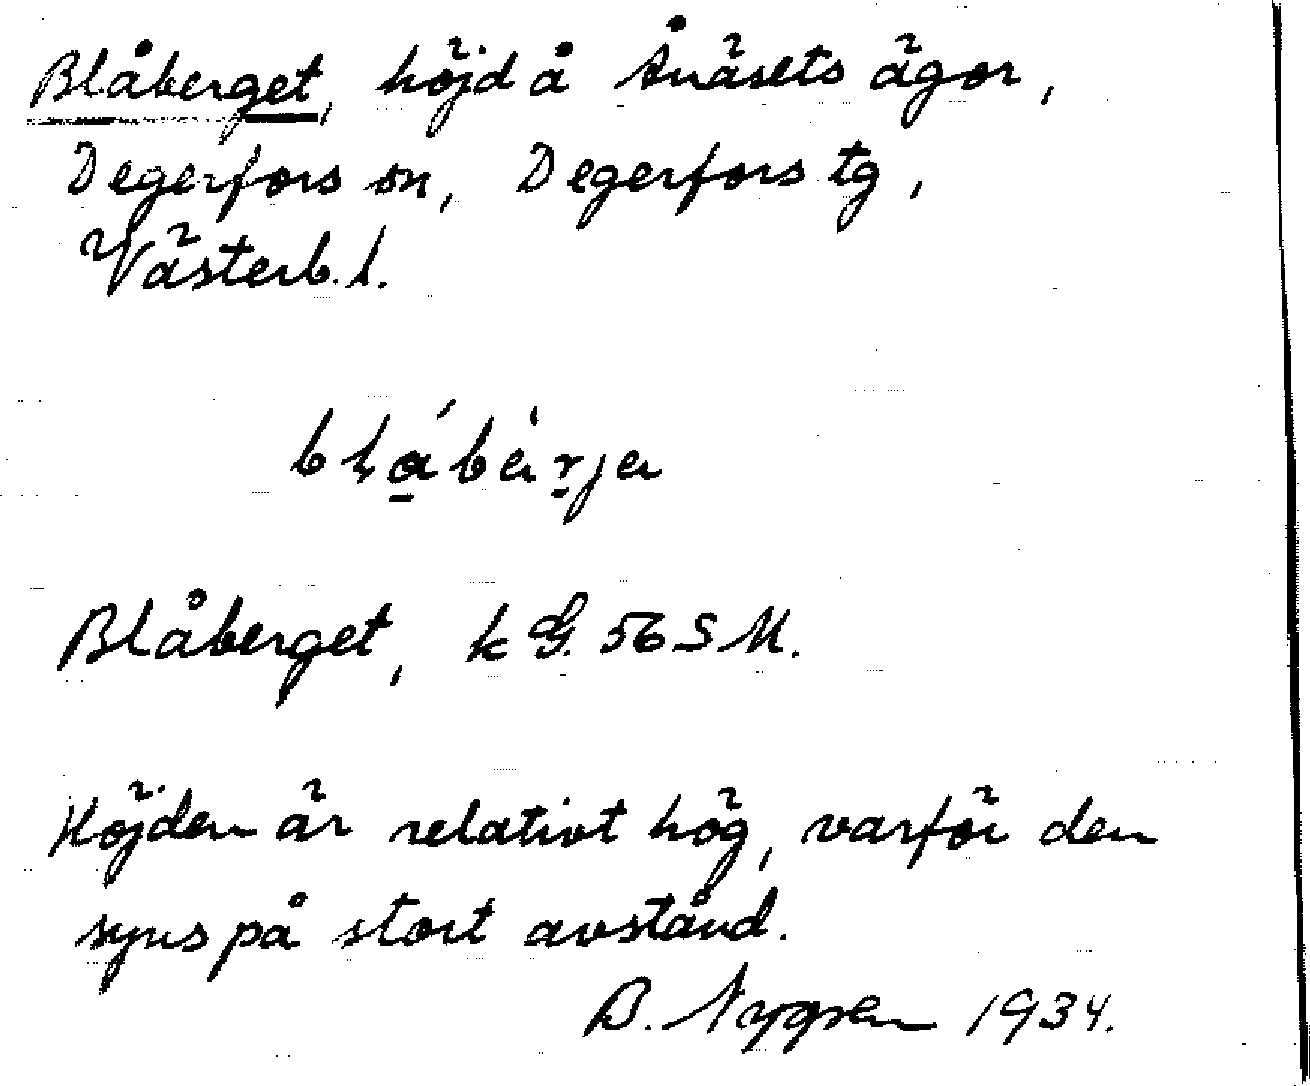 Blåberget, höjd å Ånäsets ägor,
Degerfors sn, Degerfors tg,
Västerb. l.
Blåberget, k G. 56 S M.
Höjden är relativt hög, varför den
syns på stort avstånd.
B. Nygren 1934.